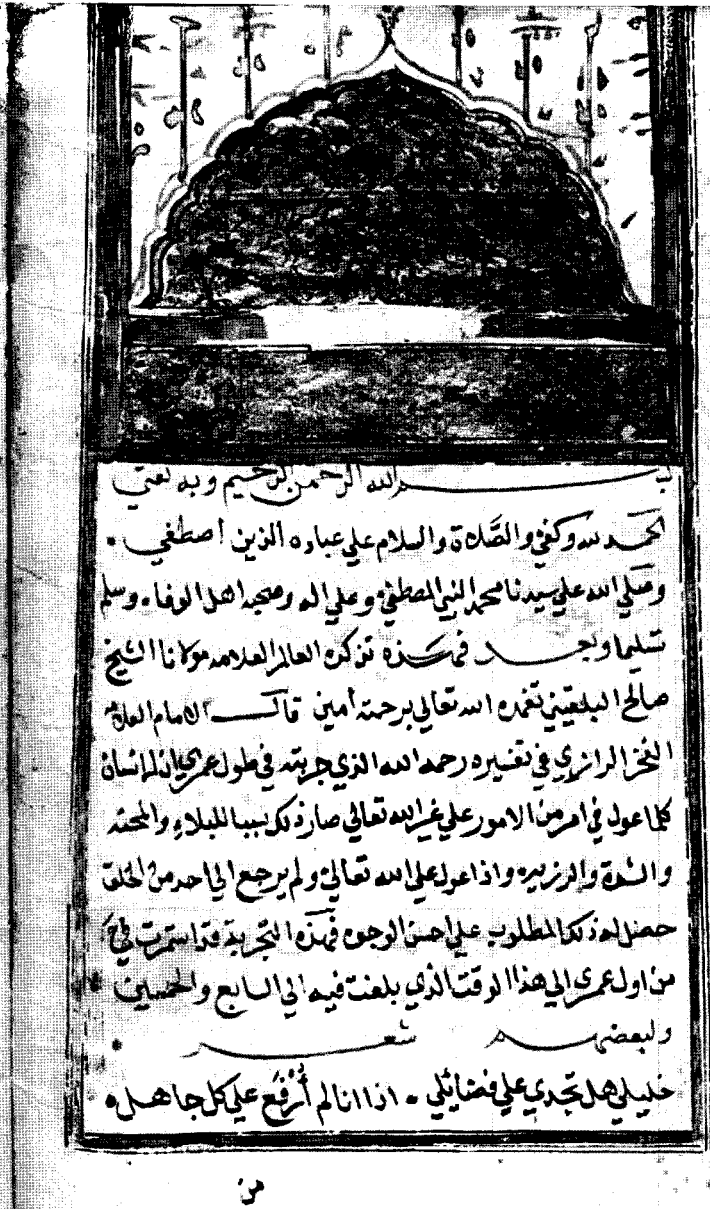 بسم الله الرحمن الرحيم وبه ثقتي
الحمد لله وكفى والصَّلاة والسلام علي عباده الذين اصطفي •
وصلي الله علي سيدنا محمد النبي المصطفي وعلي اله وصحبه اهل الوفاء وسلم
تسليما وبعد فهذه تذكرة العالم العلامه مولانا الشيخ
صالح البلقيني تغمده الله تعالي برحمته أمين قال الامام العلامه
الفخر الرازي في تفسيره رحمه الله الذي جربته في طول عمري ان الانسان
كلما عول في امر من الامور علي غير الله تعالي صار ذلك سببا للبلاء والمحنه
والشدة والرزيه واذا عول علي الله تعالي ولم يرجع الي احد من الخلق
حصل له ذلك المطلوب علي احسن الوجوه فهذه التجربة قد استمرت لي
من اول عمري الي هذا الوقت الذي بلغت فيه الي السابع والخمسين
ولبعضهم شعر •
خليلي هل تجدي علي فضائلي • اذا انا لم أُرفع علي كل جاهل •
من